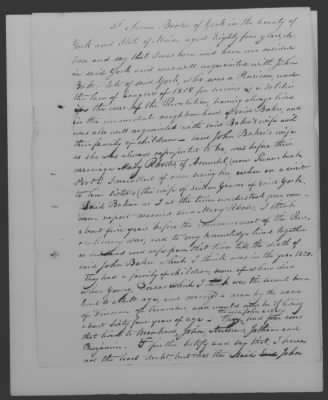 I Aaron Booker of York in the County of
York and State of Maine aged Eighty four years, de-
pose and say that I was born and have ever resided
in said York and was well acquainted with John
Baker late of said York, who was a Pensioner under
the law of Congress of 1818 for services as a Soldier
in the war of the Revolution, having always lived
in the immediate neighbourhood of said Baker, and
was also well acquainted with said Baker's wife and
their family of children. said John Baker's wife
as she was always reputed to be, was before their
marriage Mary Rhodes of Arundel, (now Kennebunk
Port) I recollect of once seeing her when on a visit
to her sister, (the wife of Grover of said York.
Said Baker as I at the time understood from com-
mon report married said Mary Rhodes, I think
about five years before the commencement of the Rev-
olutionary war, and to my knowledge lived together
as husband and wife from that time till the death of
said John Baker which I think was in the year 1820.
They had a family of children, some of whom died
when Young, Dorcas which I think was the oldest born
lived to adult age, and married a man by the name
of and would now be if living
about Sixty four years of age. They had four sons
that lived to Manhood, John, Andrew, Jotham and
Benjamin. I further testify and say that I have
not the least doubt, but that the said John